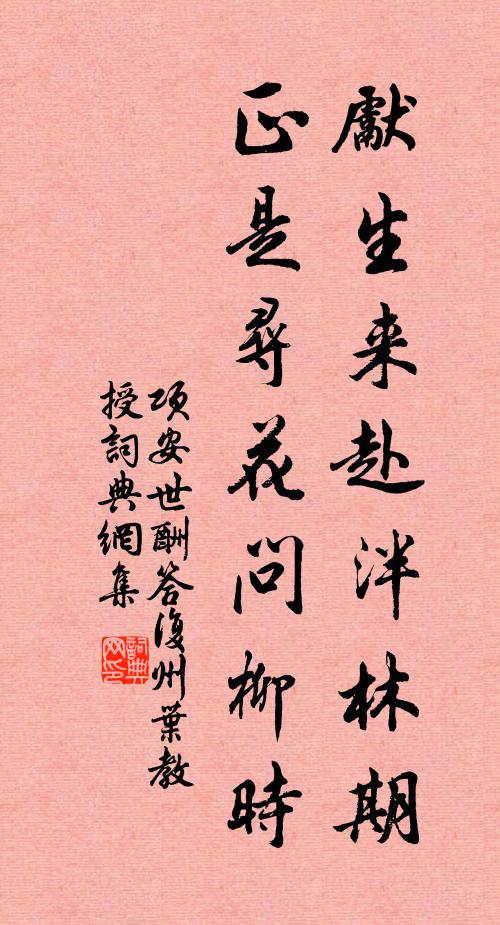 獻生来赴泮林期
正是尋花問柳時
項安世酬答復州葉教
授詞典網集
詞典網印